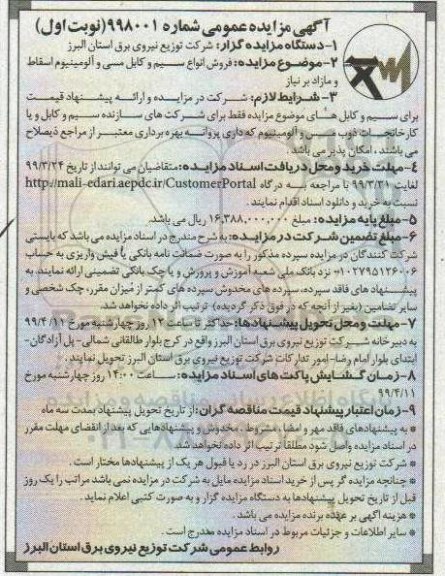 آگهی مزایده عمومی شماره ۹۹۸۰۰۱ (نوبت اول)
۱- دستگاه مزایده گزار: شرکت توزیع نیروی برق استان البرز
۲- موضوع مزایده: فروش انواع سیم و کابل مسی و آلومینیوم اسقاط
و مازاد بر نیاز
۳- شرایط لازم: شرکت در مزایده و ارائه پیشنهاد قیمت
برای سیم و کابل های موضوع مزایده فقط برای شرکت های سازنده سیم و کابل و یا
کارخانجات ذوب مس و آلومنیوم که داری پروانه بهره برداری معتبر از مراجع ذیصلاح
می باشند، امکان پذیر می باشد.
۴- مهلت خرید و محل دریافت اسناد مزایده: متقاضیان می توانند از تاریخ ۹۹/۳/۲۴
لغایت ۹۹/۳/۳۱ با مراجعه به درگاه http://mali-edari.aepdc.ir/CustomerPortal
نسبت به خرید و دانلود اسناد اقدام نمایند.
۵- مبلغ پایه مزایده: مبلغ ۱۶,۳۸۸,۰۰۰,۰۰۰ ریال می باشد.
۶- مبلغ تضمین شرکت در مزایده: به شرح مندرج در اسناد مزایده می باشد که بایستی
شرکت کنندگان در مزایده سپرده مذکور را به صورت ضمانت نامه بانکی یا فیش واریزی به حساب
۰۱۰۲۷۹۵۱۲۶۰۰۶ نزد بانک ملی شعبه آموزش و پرورش و یا چک بانکی تضمینی ارائه نمایند. به
پیشنهاد های فاقد سپرده، سپرده های مخدوش سپرده های کمتر از میزان مقرر، چک شخصی و
سایر تضامین (بغیر از آنچه که در فوق ذکر گردیده) ترتیب اثر داده نخواهد شد.
۷- مهلت و محل تحویل پیشنهادها: حداکثر تا ساعت ۱۲ روز چهارشنبه مورخ ۹۹/۴/۱۱
به دبیرخانه شرکت توزیع نیروی برق استان البرز واقع در کرج بلوار طالقانی شمالی- پل آزادگان-
ابتدای بلوار امام رضا- امور تدارکات شرکت توزیع نیروی برق استان البرز تحویل نمایند.
۸- زمان گشایش پاکت های اسناد مزایده: ساعت ۱۴:۰۰ روز چهارشنبه مورخ
۹۹/۴/۱۱
۹- زمان اعتبار پیشنهاد قیمت مناقصه گران: از تاریخ تحویل پیشنهاد بمدت سه ماه
* به پیشنهادهای فاقد مهر و امضا، مشروط، مخدوش و پیشنهادهایی که بعد از انقضای مهلت مقرر
در اسناد مزایده واصل شود مطلقا ترتیب اثر داده نخواهد شد.
* شرکت توزیع نیروی برق استان البرز در رد یا قبول هر یک از پیشنهادها مختار است.
* چنانچه مزایده گر پس از خرید اسناد مزایده مایل به شرکت در مزایده نمی باشد مراتب را یک روز
قبل از تاریخ تحویل پیشنهادها به دستگاه مزایده گزار و به صورت کتبی اعلام نماید.
* هزینه آگهی بر عهده برنده مزایده می باشد.
* سایر اطلاعات و جزئیات مربوط در اسناد مزایده مندرج است.
روابط عمومی شرکت توزیع نیروی برق استان البرز